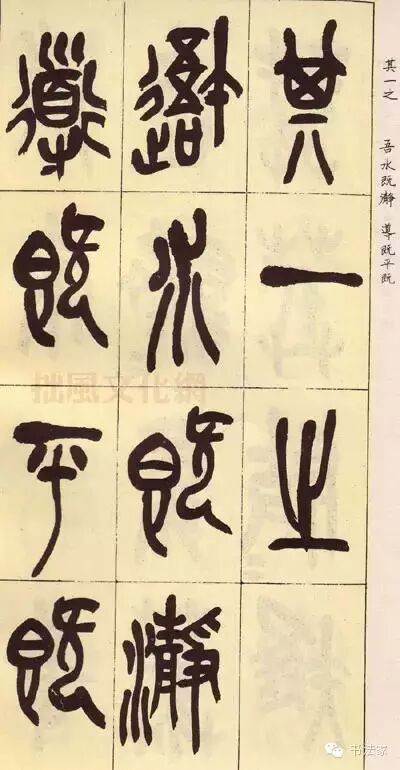 其一之
吾水既瀞
導既平既
其一之 吾水既瀞 導既平既
拙風文化網
书法家